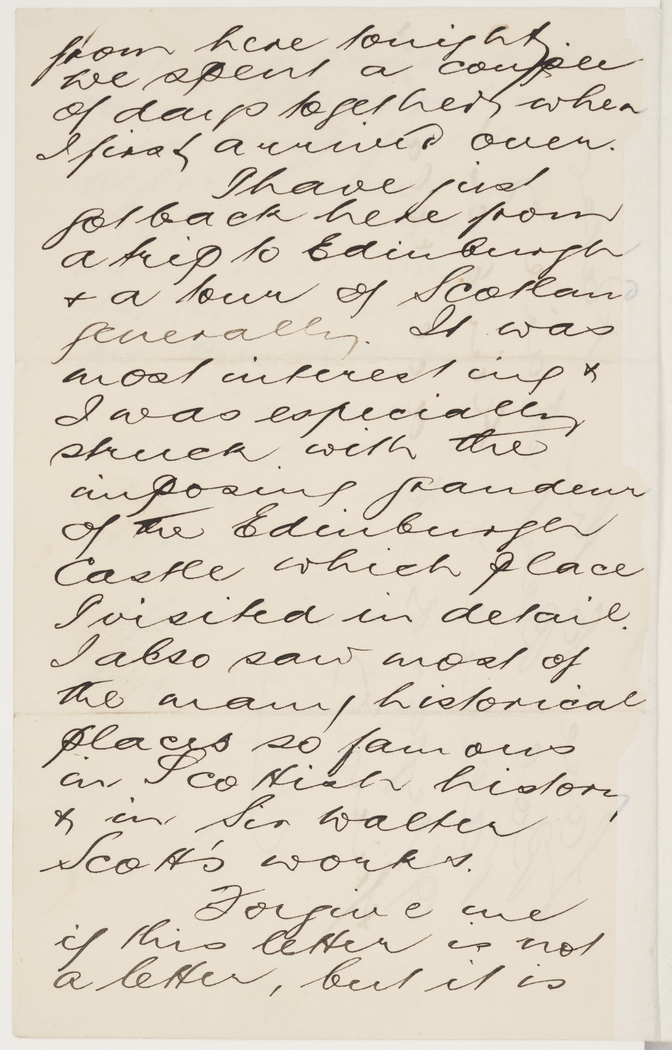 from here tonight,
we spent a couple
of days together, when
I first arrived over.
I have just
got back here from
a trip to Edinburgh
& a tour of Scotland
generally. It was
most interesting &
I was especially
struck with the
imposing grandeur
of the Edinburgh
Castle which place
I visited in detail.
I also saw most of
the many historical
places so famous
in Scottish history
& in Sir Walter
Scott's works.
Forgive me
if this letter is not
a letter, but it is